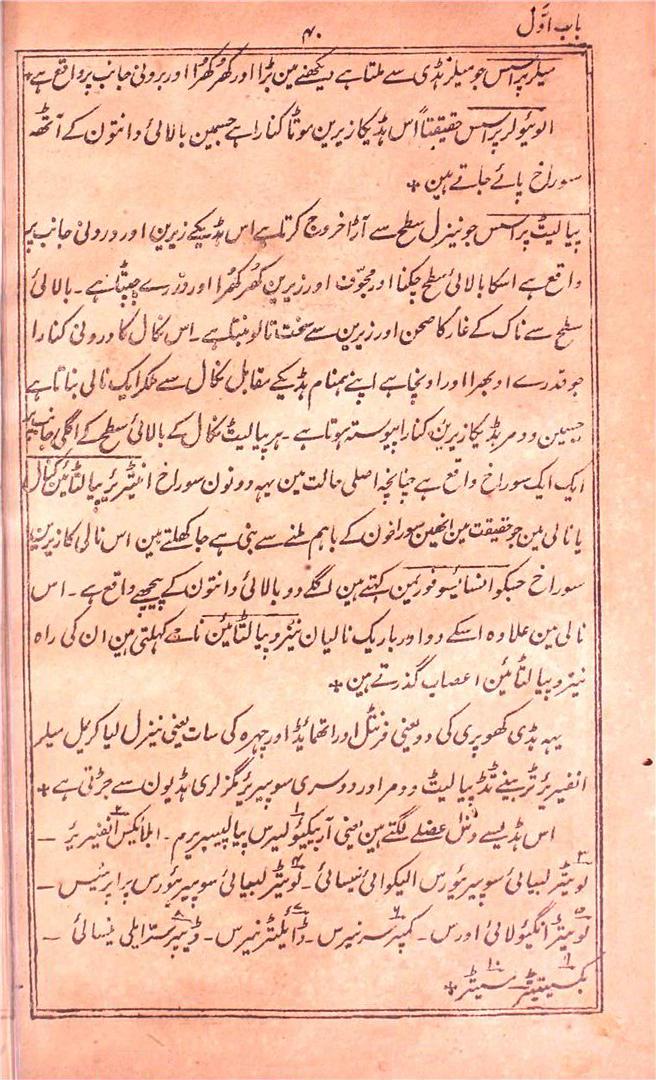 باب اوّل
۴۰
میلر پراسس جو میلر ہڈی سے ملتا ہے دیکھنے مین بڑا اور کھُر کھُرا اور برونی جانب پر واقع ہے *
الویُولر پراسس حقیقتاً اس ہڈیکا زیرین موٹا کنارا ہے جسمین بالائی دانتون کے آٹھہ
سوراخ پائے جاتے ہین *
پیالیٹ پراسس جو نیزل سطح سے آڑا خروج کرتا ہے اس ہڈیکے زیرین اور درونی جانب پر
واقع ہے اسکا بالائی سطح چکنا اور مجوّف اور زیرین کھُر کھُرا اور ذرے چپٹا ہے ۔ بالائی
سطح سے ناک کے غار کا صحن اور زیرین سے سخت تالو بنتا ہے ۔ اس ٹکال کا درونی کنارا
جو قدرے اوبھرا اور اونچا ہے اپنے ہمنام ہڈیکے مقابل ٹکال سے ملکر ایک نالی بناتا ہے
جسمین وومر ہڈیکا زیرین کنارا پیوستہ ہوتا ہے ۔ ہر پیالیٹ ٹکال کے بالائی سطح کے اگلی جانب پر
ایک ایک سوراخ واقع ہے چنانچہ اصلی حالت مین یہہ دونون سوراخ انٹیریُر پیالٹائین کنال
یا نالی مین جو حقیقت مین انھین سوراخون کے باہم ملنے سے بنی ہے جا کھلتے ہین اس نالی کا زیرین
سوراخ جسکو انسائیسو فورمین کہتے ہین اگلے دو بالائی دانتون کے پیچھے واقع ہے ۔ اس
نالی مین علاوہ اسکے دو اور باریک نالیان نیزو پیالٹائین نامے کہلتی ہین ان کی راہ
نیزو پیالٹائین اعصاب گذرتے ہین *
یہہ ہڈی کھوپری کی دو یعنی فرنٹل اور اتھمائیڈ اور چہرہ کی سات یعنی نیزل لیاکریمل میلر
انفیریُر ٹربینے ٹڈ پیالیٹ وومر اور دوسری سوپیریُر مگزلری ہڈیون سے جڑتی ہے *
اس ہڈیسے دنل عضلے لگتے ہین یعنی آربیکیُولیرس پیالپیبریرم ۱ ۔ ابلائکس انفیریُر ۲ ۔
۳ لویٹر لیبیائی سوپیریُورس الیکوائی نیسائی ۔ ۴ لویٹر لیبیائی سوپیریُورس پراپریئس ۔
۵ لویٹر انگیُولائی اورس ۔ ۶ کمپرسر نیرس ۔ ۷ ڈائیلیٹر نیرس ۔ ۸ ڈیپرسر ایلی نیسائی ۔
۹ بکسینیٹر ۔ ۱۰ مسیٹر *